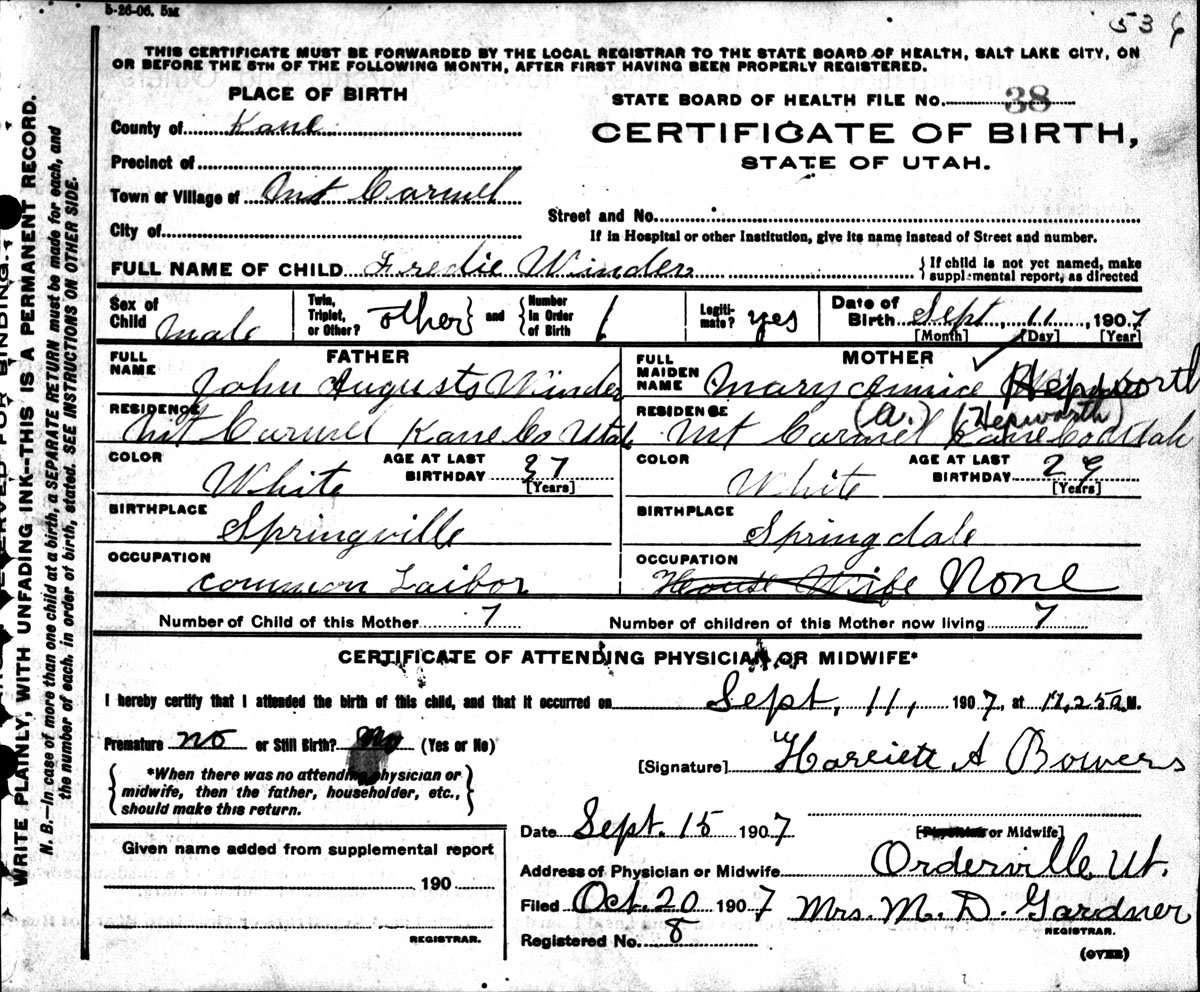 5-26-06. 5M
53 6
THIS CERTIFICATE MUST BE FORWARDED BY THE LOCAL REGISTRAR TO THE STATE BOARD OF HEALTH, SALT LAKE CITY, ON
OR BEFORE THE 5TH OF THE FOLLOWING MONTH, AFTER FIRST HAVING BEEN PROPERLY REGISTERED.
PLACE OF BIRTH
STATE BOARD OF HEALTH FILE No. 38
County of Kane
CERTIFICATE OF BIRTH,
STATE OF UTAH.
Precinct of
Town or Village of Mt Carmel
Street and No.
City of
If in Hospital or other Institution, give its name instead of Street and number.
FULL NAME OF CHILD Fredie Winder
{ If child is not yet named, make
supplemental report, as directed
Sex of Child male
Twin, Triplet, or Other? other } and { Number in Order of Birth 1
Legitimate? yes
Date of Birth Sept, 11, 1907
[Month] [Day] [Year]
FATHER
FULL NAME John Augusts Winder
RESIDENCE
Mt Carmel Kane Co Utah
COLOR White
AGE AT LAST BIRTHDAY 37
[Years]
BIRTHPLACE
Springville
OCCUPATION
common Laibor
MOTHER
FULL MAIDEN NAME Mary Annice Hepworth
(a.) (Hepworth)
RESIDENCE
Mt Carmel Kane Co Utah
COLOR White
AGE AT LAST BIRTHDAY 29
[Years]
BIRTHPLACE
Springdale
OCCUPATION
House Wife None
Number of Child of this Mother 7
Number of children of this Mother now living 7
CERTIFICATE OF ATTENDING PHYSICIAN OR MIDWIFE*
I hereby certify that I attended the birth of this child, and that it occurred on Sept, 11, 1907, at 11,25 a M.
Premature no or Still Birth? No (Yes or No)
[Signature] Harriett A Bowers
{ *When there was no attending physician or
midwife, then the father, householder, etc.,
should make this return. }
Date Sept. 15 1907
[Physician or Midwife]
Given name added from supplemental report
190
REGISTRAR.
Address of Physician or Midwife Orderville Ut.
Filed Oct. 20 1907 Mrs. M. D. Gardner
REGISTRAR.
Registered No. 8
(OVER)
WRITE PLAINLY, WITH UNFADING INK--THIS IS A PERMANENT RECORD.
N. B.—In case of more than one child at a birth, a SEPARATE RETURN must be made for each, and
the number of each, in order of birth, stated. SEE INSTRUCTIONS ON OTHER SIDE.